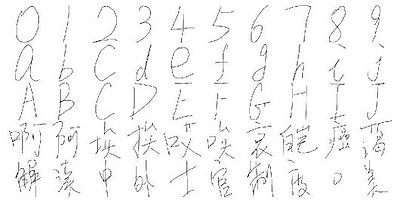 0 1 2 3 4 5 6 7 8 9
a b c d e f g h i j
A B C D E F G H I J
啊 阿 埃 挨 哎 唉 哀 皑 癌 蔼
解 中 外 士 官 制 度 の